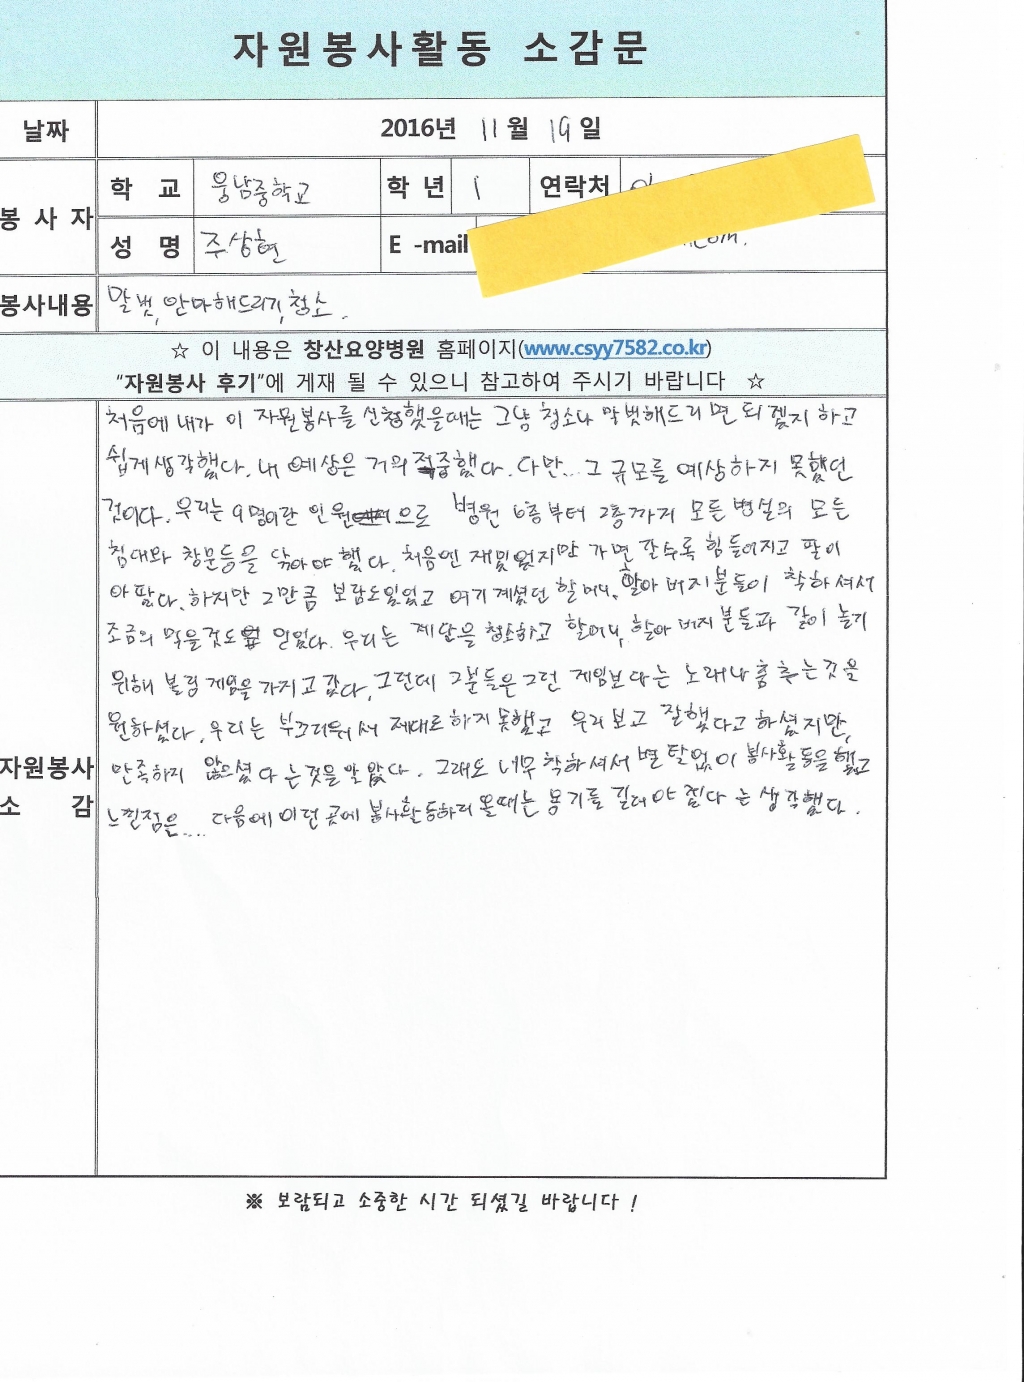 자원봉사활동 소감문
날짜 2016년 11월 19일
봉 사 자 학 교 웅남중학교 학 년 1 연락처
성 명 주상현 E -mail .com.
봉사내용 말벗, 안마해드리기, 청소.
☆ 이 내용은 창산요양병원 홈페이지(www.csyy7582.co.kr)
"자원봉사 후기"에 게재 될 수 있으니 참고하여 주시기 바랍니다 ☆
자원봉사 소 감
처음에 내가 이 자원봉사를 신청했을때는 그냥 청소나 말벗해드리면 되겠지 하고
쉽게생각했다. 내 예상은 거의 적중했다. 다만... 그 규모를 예상하지 못했던
것이다. 우리는 9명이란 인원으로 병원 6층부터 2층까지 모든병실의 모든
침대와 창문등을 닦아야 했다. 처음엔 재밌었지만 가면 갈수록 힘들어지고 팔이
아팠다. 하지만 그만큼 보람도있었고 여기계셨던 할머니, 할아버지분들이 착하셔서
조금의 먹을것도 얻었다. 우리는 계단을 청소하고 할머니, 할아버지분들과 같이 놀기
위해 볼링게임을 가지고 갔다. 그런데 그분들은 그런 게임보다는 노래나 춤추는것을
원하셨다. 우리는 부끄러워서 제대로하지못했고 우리보고 잘했다고 하셨지만,
만족하지 않으셨다는것을 알았다. 그래도 너무 착하셔서 별탈없이 봉사활동을 했고
느낀점은.... 다음에 이런 곳에 봉사활동하러 올때는 용기를 길러야 겠다는 생각했다.
※ 보람되고 소중한 시간 되셨길 바랍니다 !